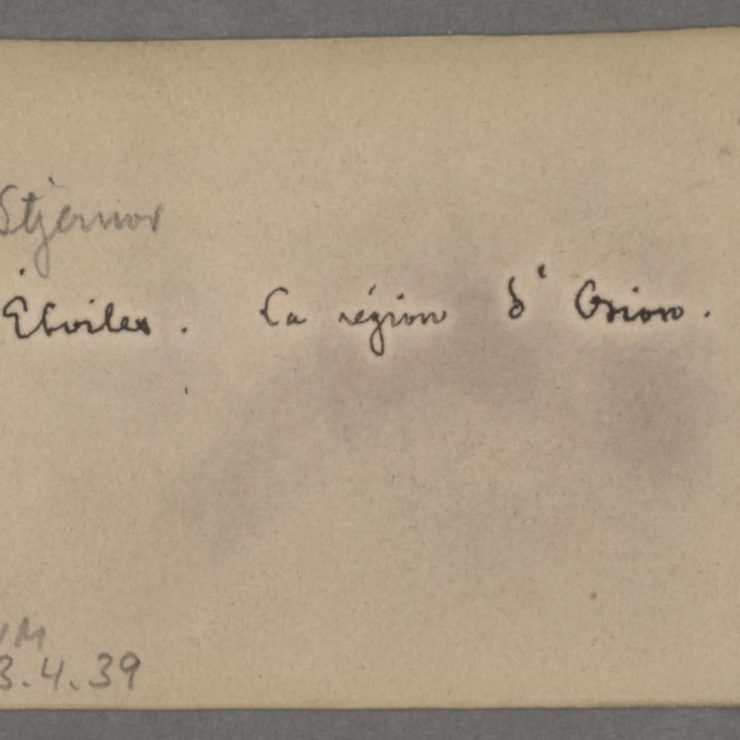 Stjernor
Étoiles. La région d'Orion.
M
3.4.39